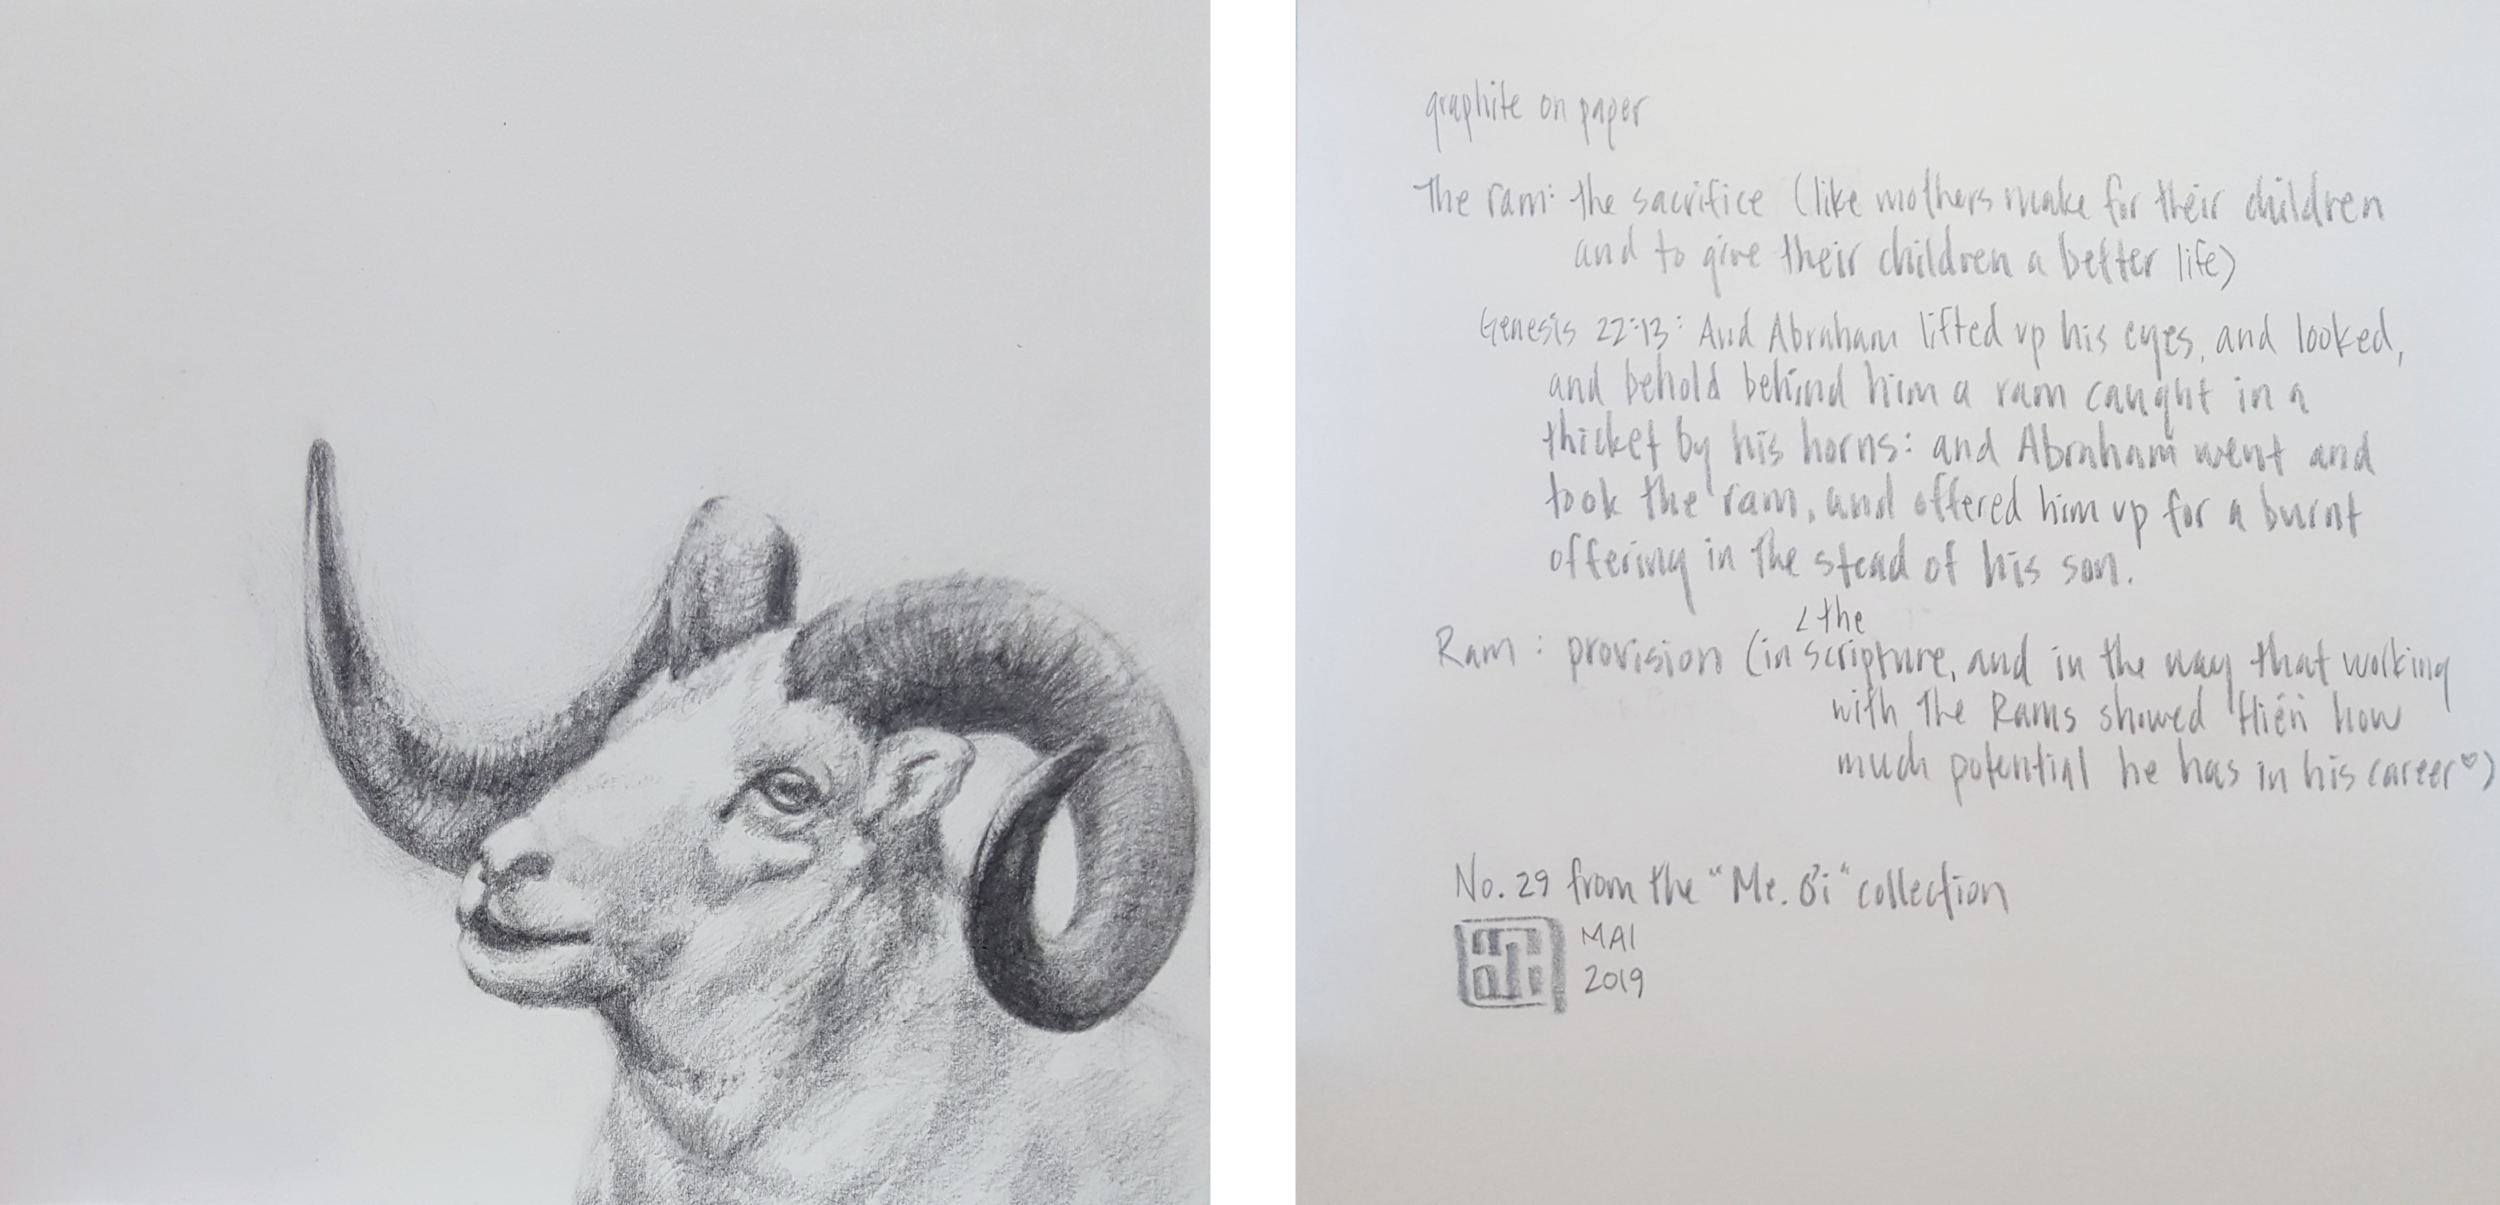 graphite on paper
The ram: the sacrifice (like mothers make for their children
and to give their children a better life)
Genesis 22:13: And Abraham lifted up his eyes, and looked,
and behold behind him a ram caught in a
thicket by his horns: and Abraham went and
took the ram, and offered him up for a burnt
offering in the stead of his son.
<the
Ram: provision (in scripture, and in the way that working
with the Rams showed Hiến how
much potential he has in his career♡)
No. 29 from the "Me. Ơi" collection
MAI
2019